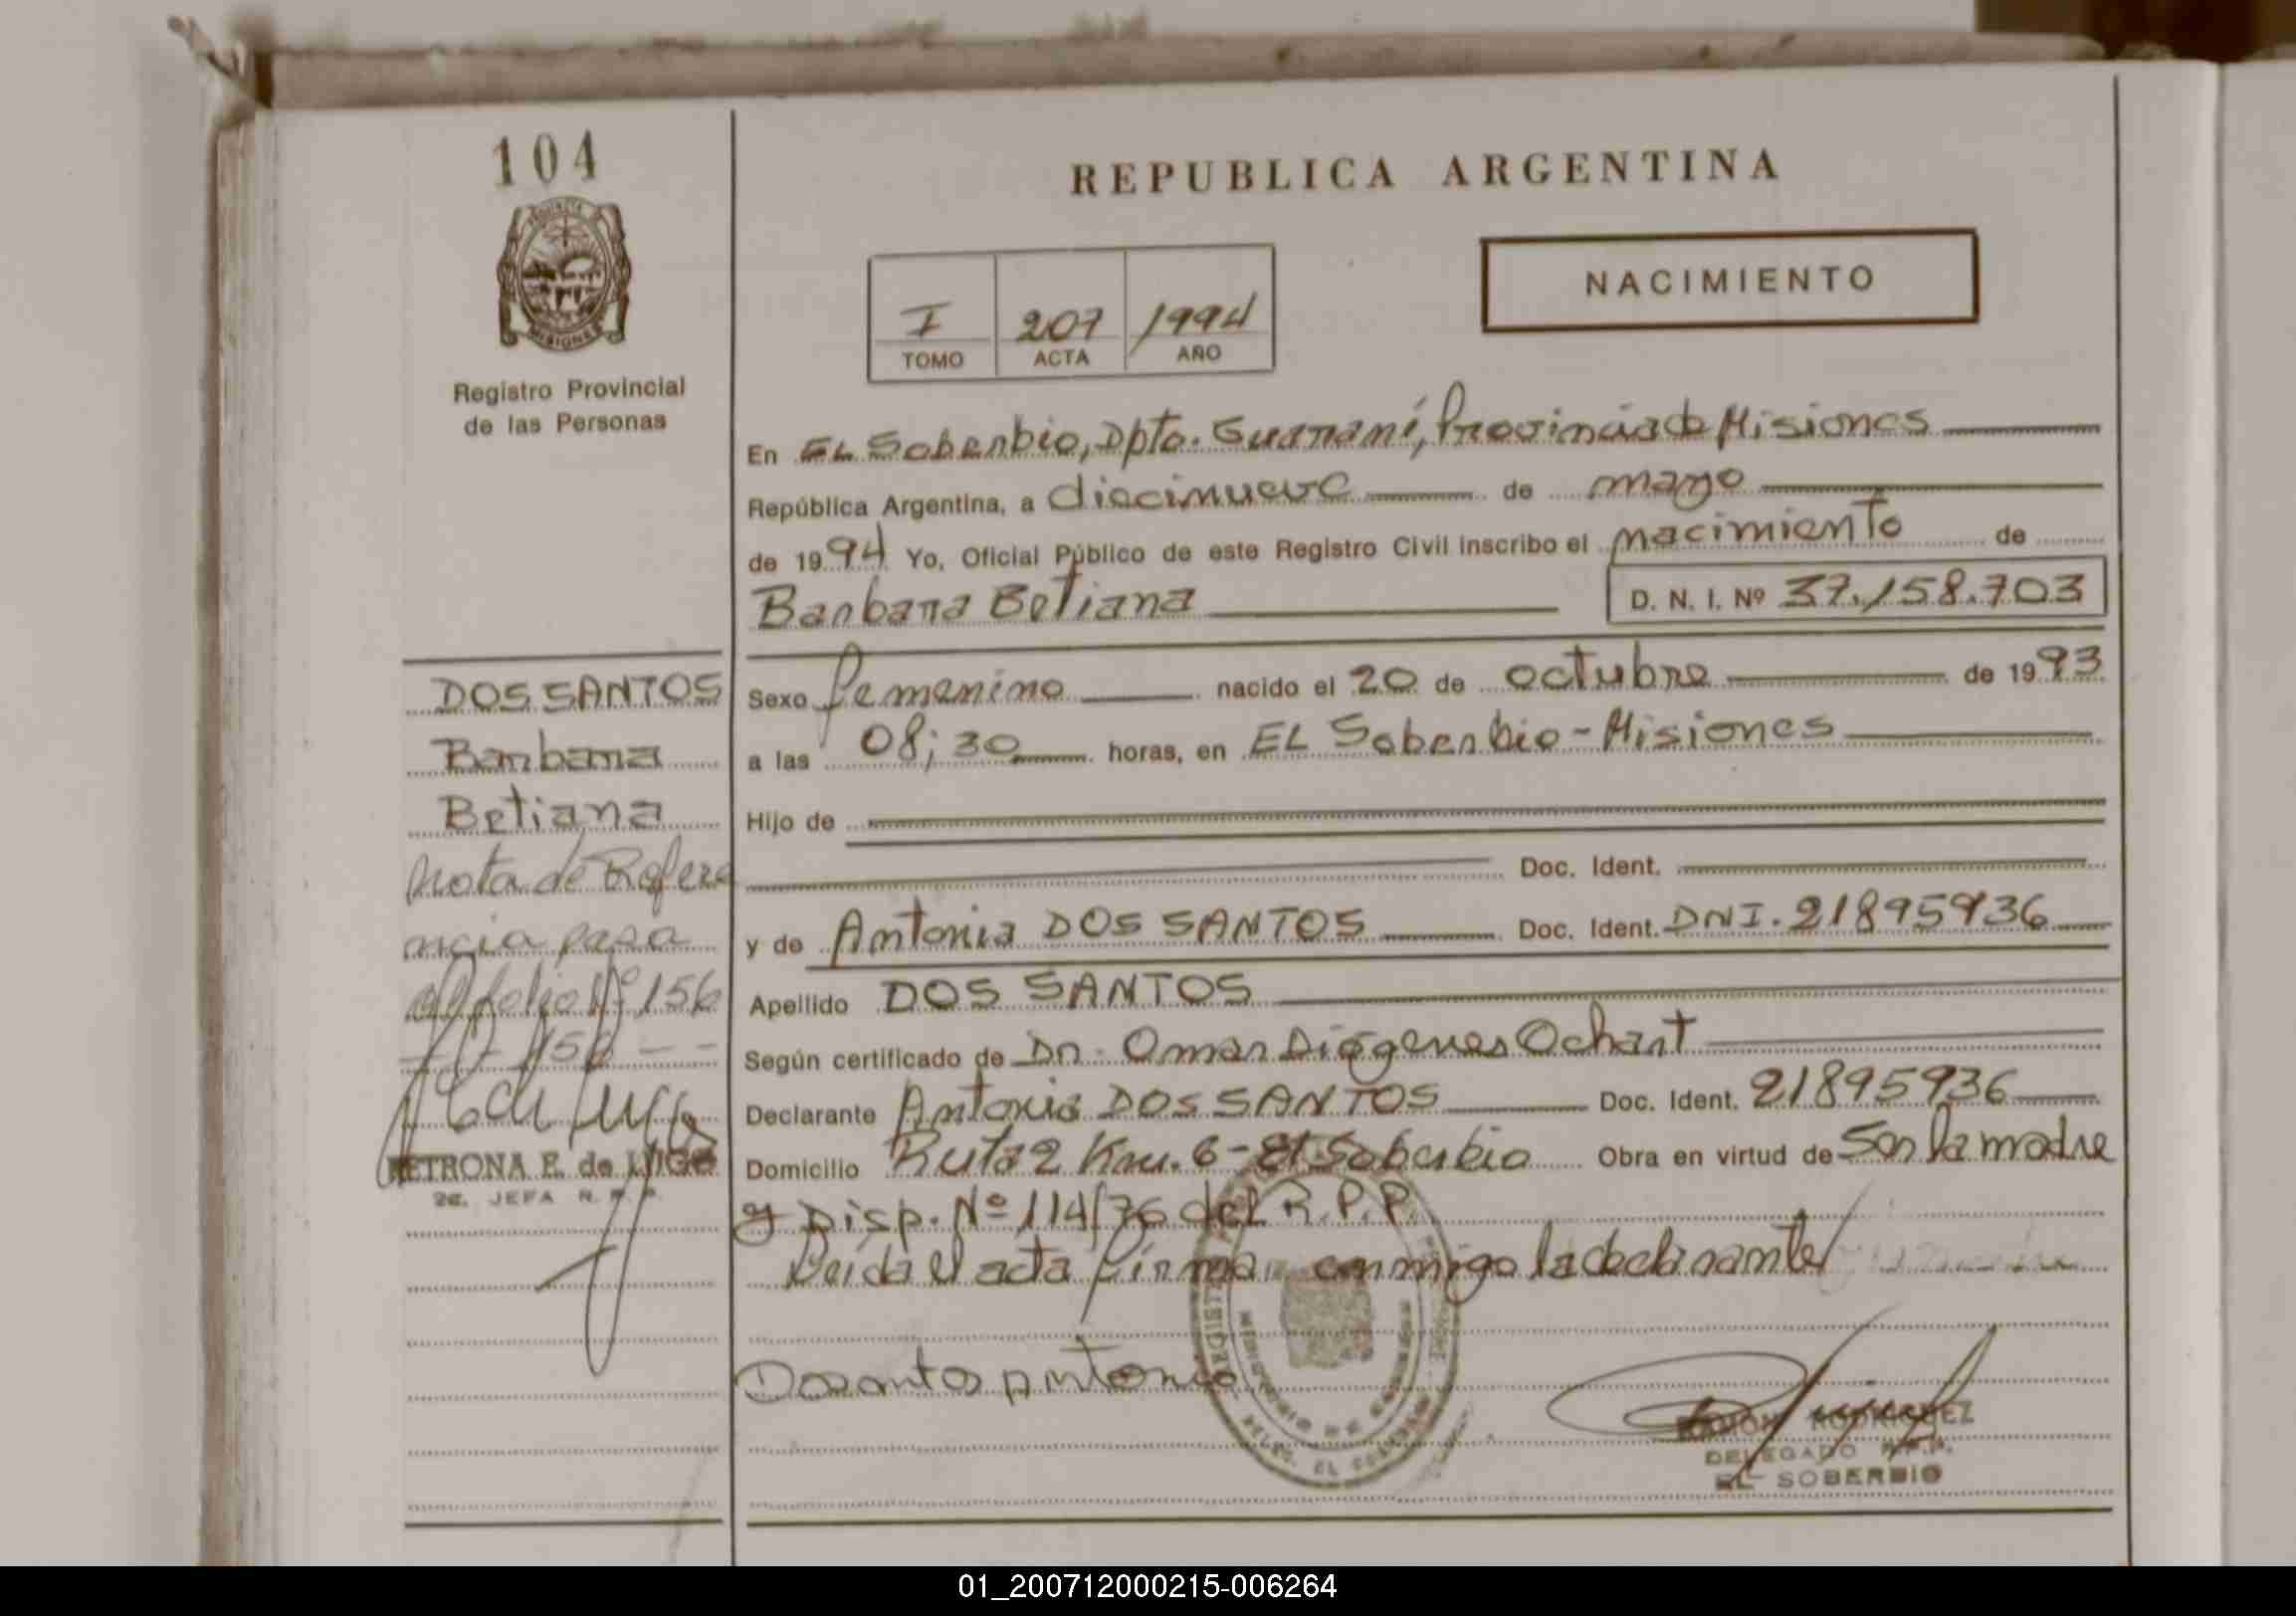 104
PROVINCIA DE
MISIONES
Registro Provincial
de las Personas
REPUBLICA ARGENTINA
NACIMIENTO
I 207 1994
TOMO ACTA AÑO
En EL Soberbio, Dpto. Guaraní, Provincia de Misiones
República Argentina, a diecinueve de mayo
de 1994 Yo, Oficial Público de este Registro Civil inscribo el nacimiento de
Barbara Betiana D. N. I. Nº 37.158.703
DOS SANTOS
Barbara
Betiana
Nota de Refere
ncia pasa
al folio Nº 156
156 - -
PETRONA E. de LUGO
2a. JEFA R. P. P.
Sexo femenino nacido el 20 de octubre de 1993
a las 08;30 horas, en EL Soberbio - Misiones
Hijo de
Doc. Ident.
y de Antonia DOS SANTOS Doc. Ident. DNI. 21895936
Apellido DOS SANTOS
Según certificado de Dr. Omar Diógenes Ochart
Declarante Antonia DOS SANTOS Doc. Ident. 21895936
Domicilio Ruta 2 Km. 6 - El Soberbio Obra en virtud de Ser la madre
y Disp. Nº 114/76 del R.P.P.
Leida el acta firma conmigo la declarante
Dosantos Antonia
RAMON RODRIGUEZ
DELEGADO R.P.P.
EL SOBERBIO
01_200712000215-006264